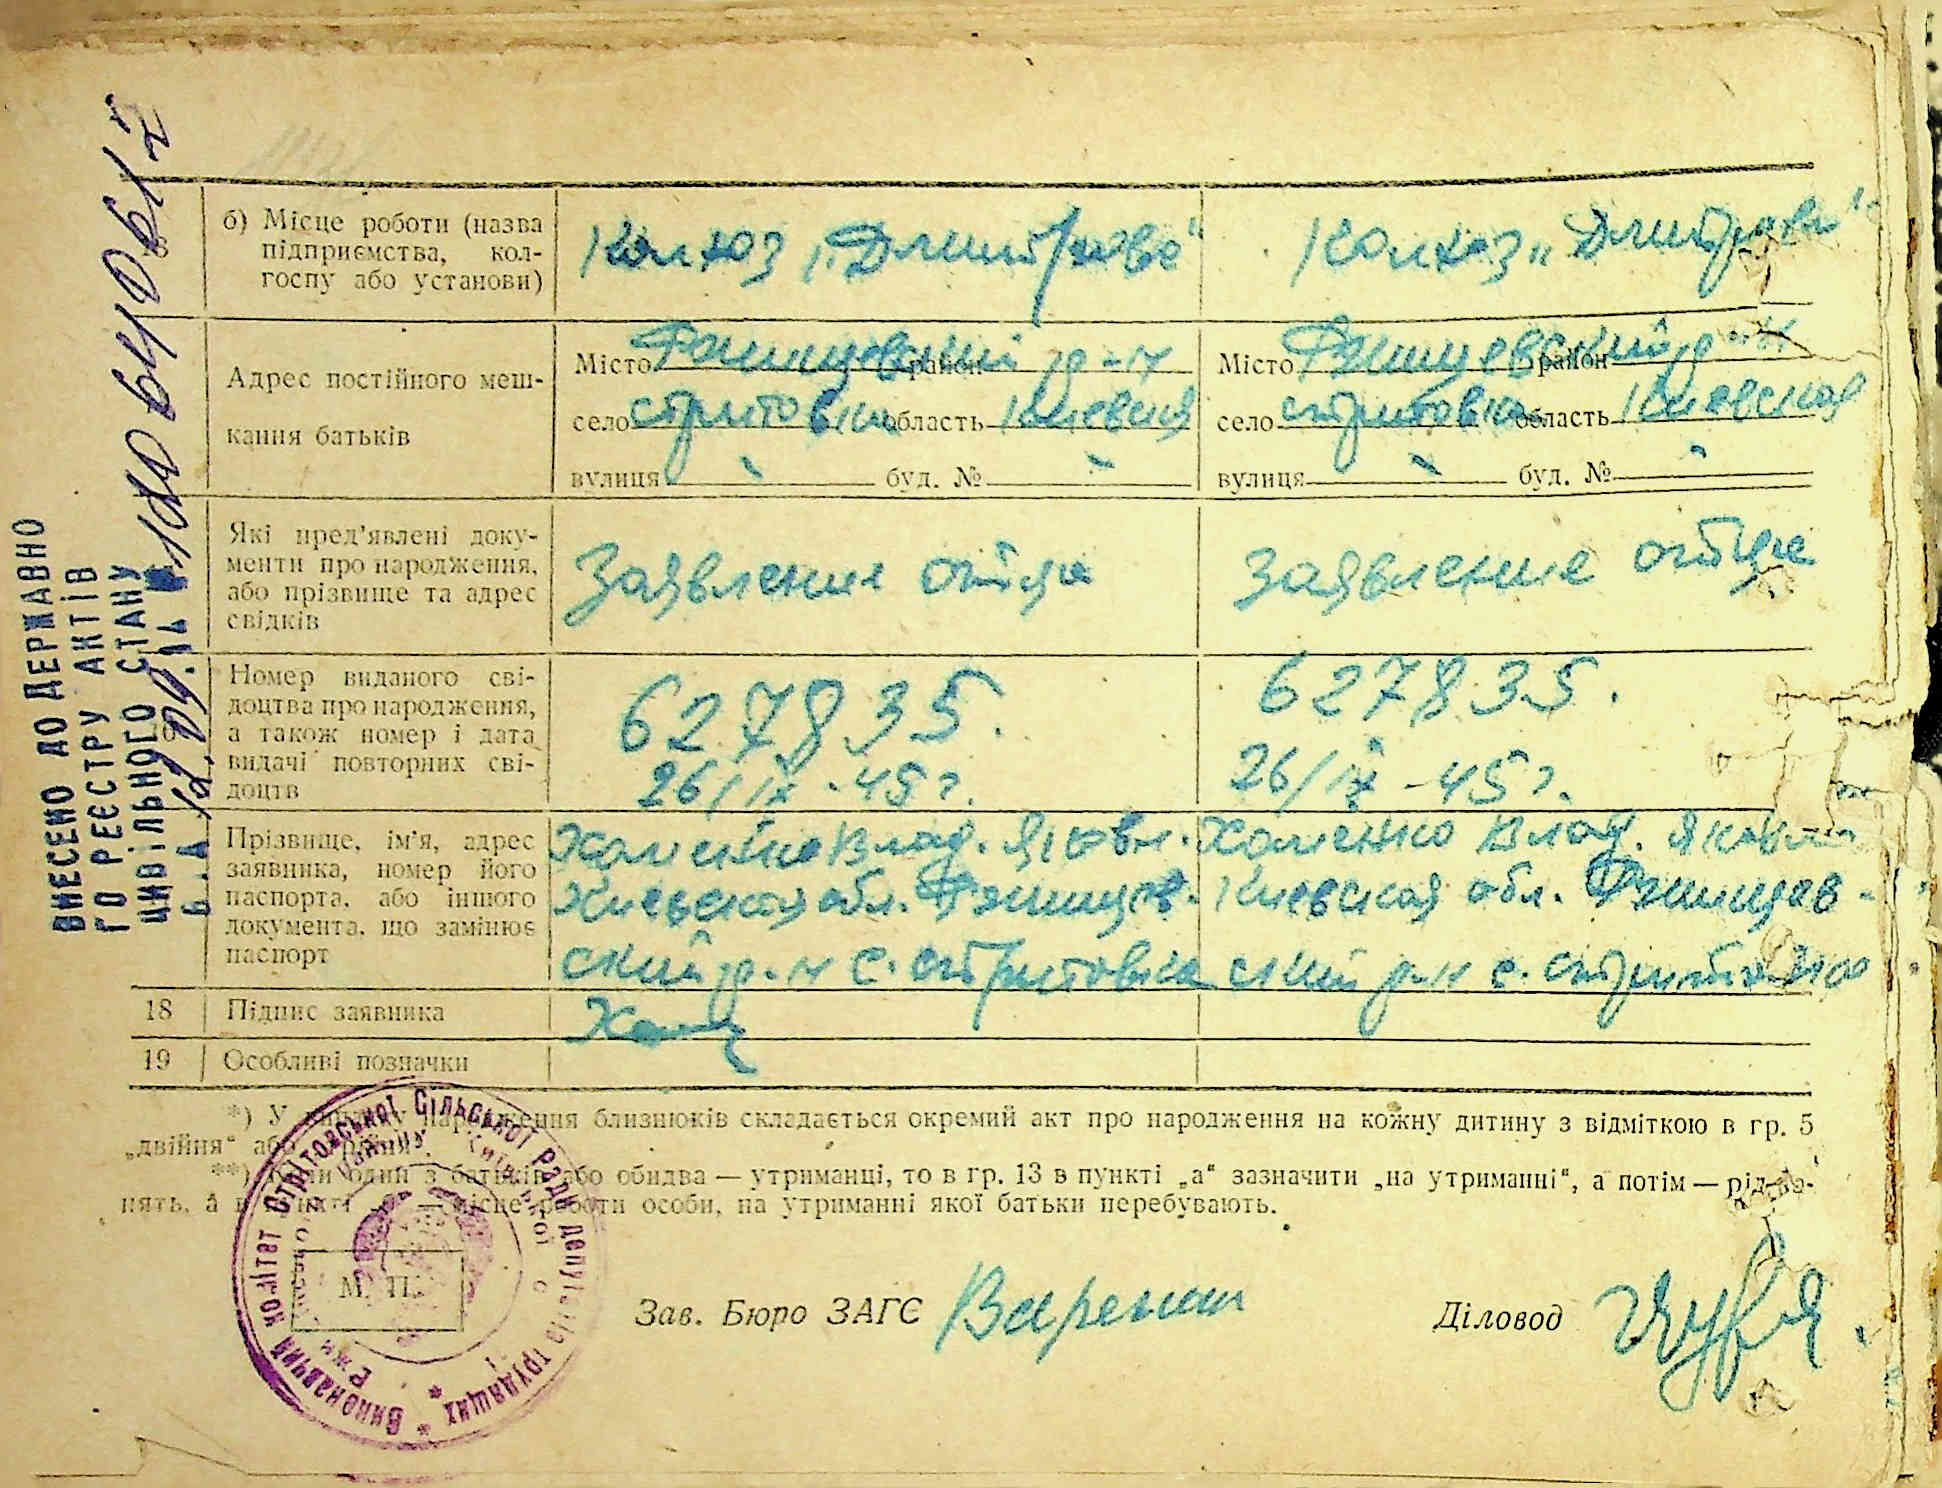 б) Місце роботи (назва
підприємства, кол-
госпу або установи)
Колхоз „Дмитрова“
Колхоз „Дмитрова“
Адрес постійного меш-
кання батьків
Місто Ржищевский район р-н
село Стритовка область Киевская
вулиця - буд. № -
Місто Ржищевский район р-н
село Стритовка область Киевская
вулиця - буд. № -
Які пред'явлені доку-
менти про народження,
або прізвище та адрес
свідків
Заявление отца
Заявление отца
Номер виданого сві-
доцтва про народження,
а також номер і дата
видачі повторних сві-
доцтв
627835.
26/IX-45 г.
627835.
26/IX-45 г.
Прізвище, ім'я, адрес
заявника, номер його
паспорта, або іншого
документа, що замінює
паспорт
Хоменко Влад. Яковл.
Киевская обл. Ржищев-
ский р-н с. Стритовка
Хоменко Влад. Яковл.
Киевская обл. Ржищев-
ский р-н с. Стритовка
18 Підпис заявника
19 Особливі позначки
*) У випадку народження близнюків складається окремий акт про народження на кожну дитину з відміткою в гр. 5
„двійня“ або „трійня“.
**) Коли один з батьків або обидва — утриманці, то в гр. 13 в пункті „а“ зазначити „на утриманні“, а потім — рід за-
нять, а в пункті „б“ — місце роботи особи, на утриманні якої батьки перебувають.
М. П.
Зав. Бюро ЗАГС
Діловод
Виконавчий комітет Стрітовської Сільської Ради депутатів трудящих
ВНЕСЕНО ДО ДЕРЖАВНО
ГО РЕЄСТРУ АКТІВ
ЦИВІЛЬНОГО СТАНУ